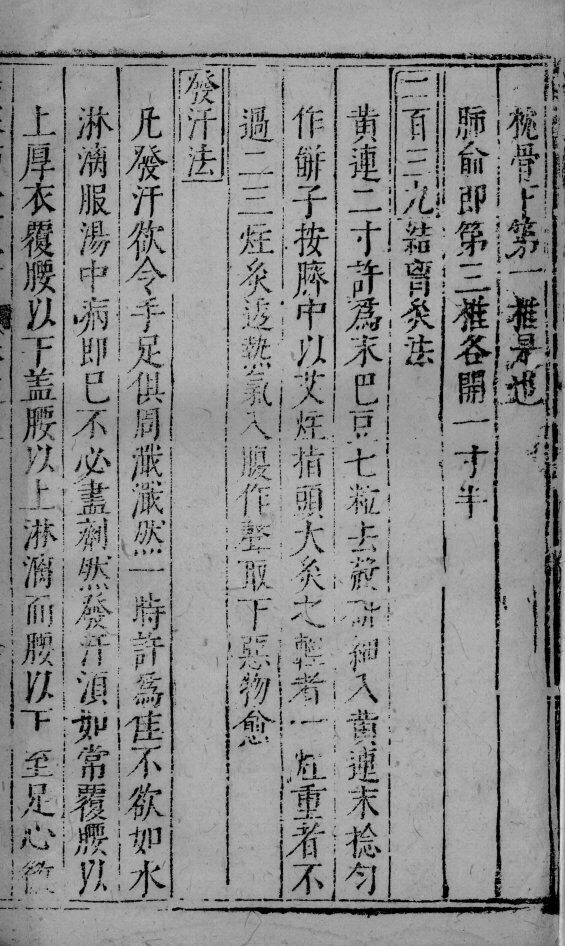 椀骨下第一椎是也
肺俞即第三椎各開一寸半
二百三九結胷灸法
黄連二寸許爲末巴豆七粒去殼研細入黄連末捻匀
作餅子按臍中以艾炷指頭大灸之輕者一炷重者不
過二三炷灸透熱氣入腹作聲取下惡物愈
發汗法
凡發汗欲令手足俱周濈濈然一時許爲佳不欲如水
淋漓服湯中病即已不必盡劑然發汗湏如常覆腰以
上厚衣覆腰以下盖腰以上淋漓而腰以下至足心微